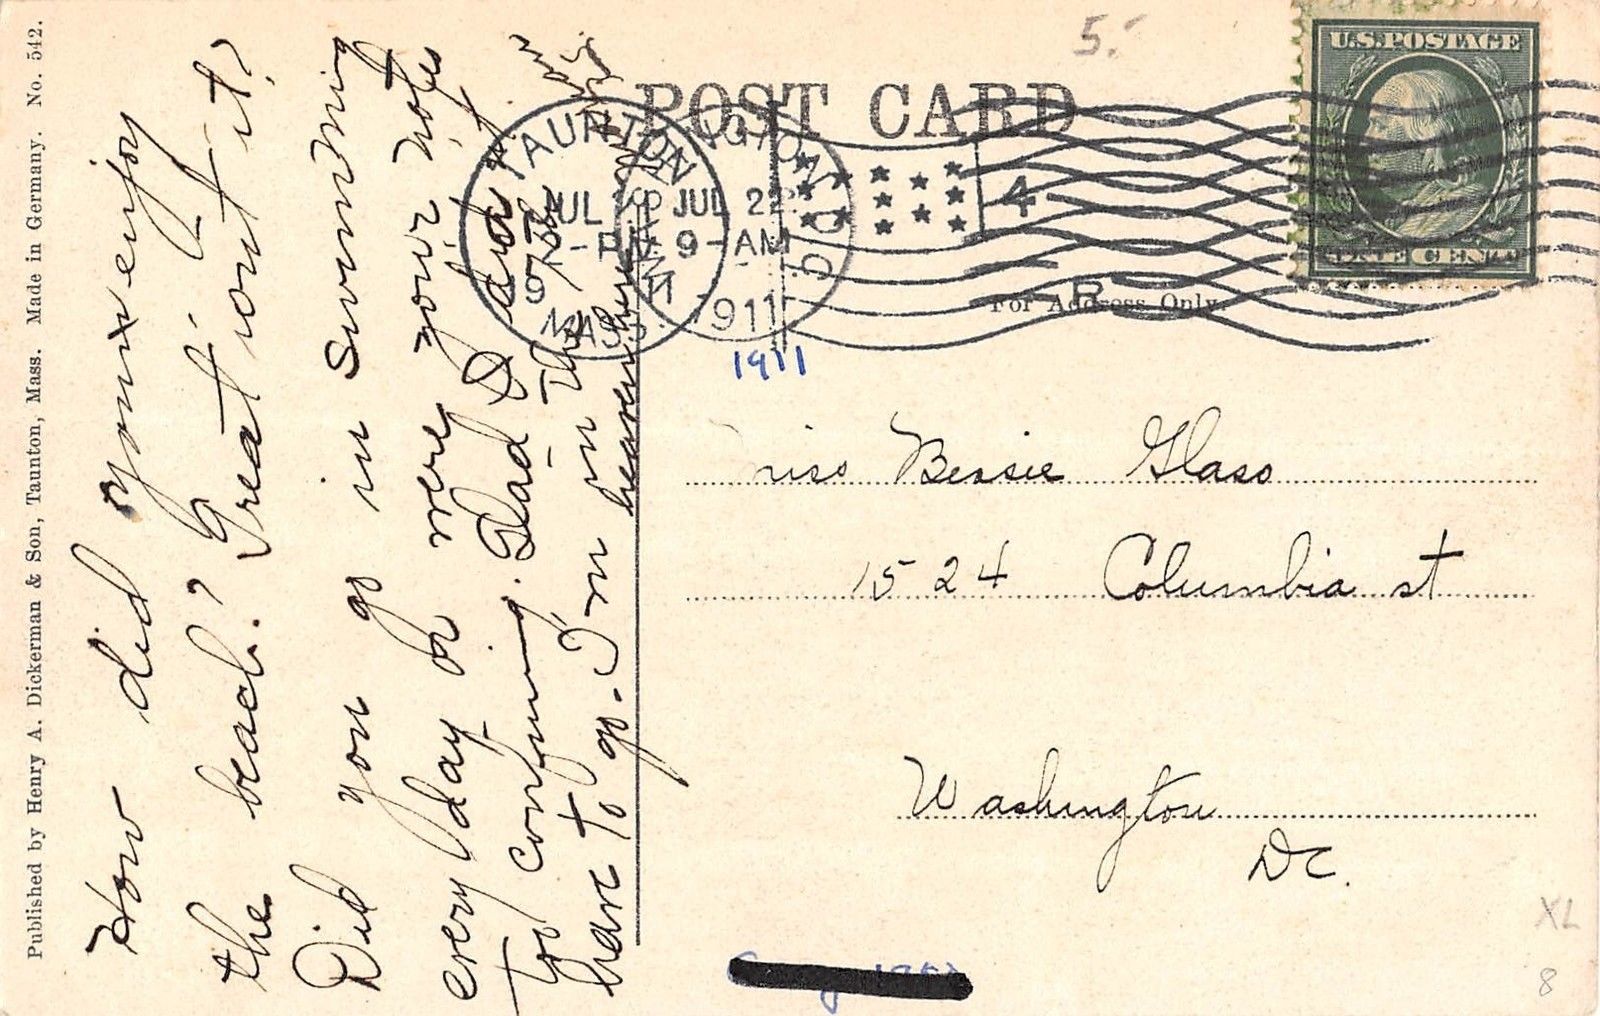 Published by Henry A. Dickerman & Son, Taunton, Mass. Made in Germany. No. 542.
How did you enjoy
the beach? Great wont it?
Did you go in swimming
every day or were your notes
too confining. Glad I did not
have to go. I'm in the
heaven
5.
POST CARD
TAUNTON
JUL
2-PM
MASS.
JUL 22
9-AM
1911
D.C.
4
U.S. POSTAGE
ONE CENT
For Address Only.
1911
Miss Bessie Glass
1524 Columbia st
Washington
DC.
XL
8